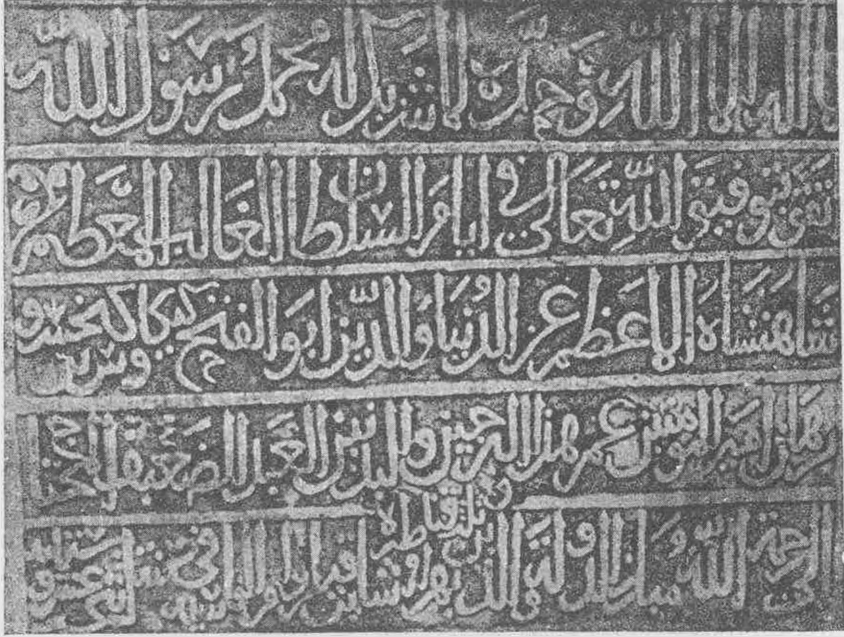 لا اله الا الله وحده لا شريك له محمد رسول الله
بتوفيق الله تعالى في ايام السلطان الغالب المعظم
شاهنشاه الاعظم عز الدنيا والدين ابو الفتح كيكاوس بن كيخسرو
برهان امير المؤمنين عمر هذا البرجين والبدنين العبد الضعيف المحتاج
الى رحمة الله مبارز الدولة والدين في